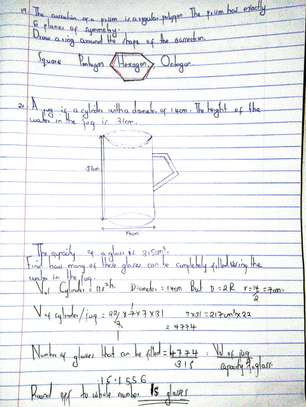 19. The cross-section of a prism is a regular polygon. The prism has exactly
6 planes of symmetry.
Draw a ring around the shape of the
Square Pentagon Hexagon Octagon
20. A jug is a cylinder with a diameter of 14cm. The height of the
water in the jug is 31cm.
31cm
14cm
The capacity of a glass is 315cm³.
Find how many of these glasses can be completely filled using the
water in the jug.
Vol Cylinder = πr²h. Diameter = 14cm But D = 2R r = 14/2 = 7cm
V of cylinder/jug = 22/7 x 7 x 7 x 31 7x31 = 217cm³ x 22
= 4774
Number of glasses that can be filled = 4774/315 : V of jug/capacity of glass
15.1556
Round off to whole number 15 glasses